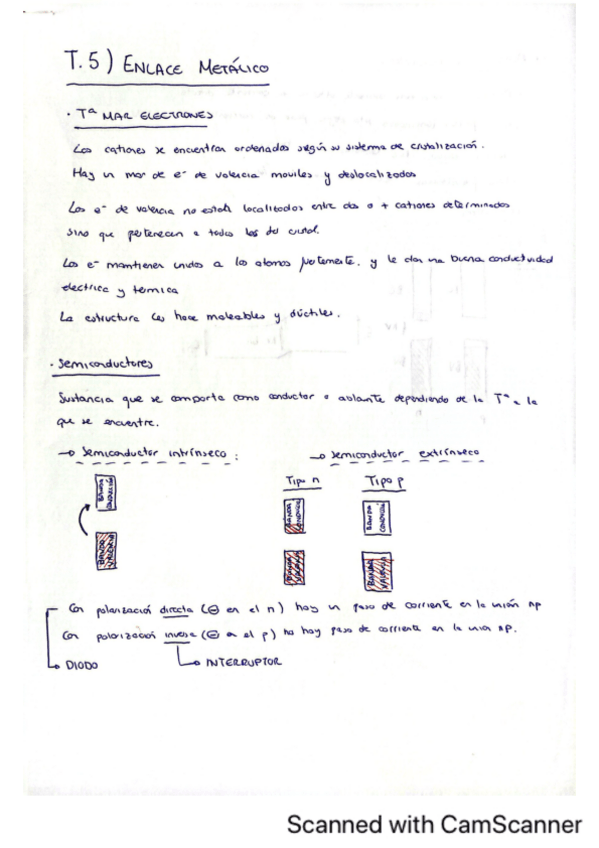 T.5) ENLACE METÁLICO
· Tª MAR ELECTRONES
Los cationes se encuentran ordenados según su sistema de cristalización.
Hay un mar de e⁻ de valencia moviles y deslocalizados
Los e⁻ de valencia no están localizados entre dos o + cationes determinados
sino que pertenecen a todos los del cristal.
Los e⁻ mantienen unidos a los atomos fuertemente, y le dan una buena conductividad
electrica y termica
La estructura les hace maleables y dúctiles.
· Semiconductores
Sustancia que se comporta como conductor o aislante dependiendo de la Tª a la
que se encuentre.
→ Semiconductor intrínseco :
→ Semiconductor extrínseco
Tipo n Tipo p
BANDA CONDUCCIÓN
BANDA VALENCIA
BANDA CONDUCC
BANDA VALENCIA
BANDA CONDUCC
BANDA VALENCIA
Con polarización directa (⊖ en el n) hay un paso de corriente en la unión np
Con polarización inversa (⊖ en el p) no hay paso de corriente en la union np.
DIODO
INTERRUPTOR
Scanned with CamScanner